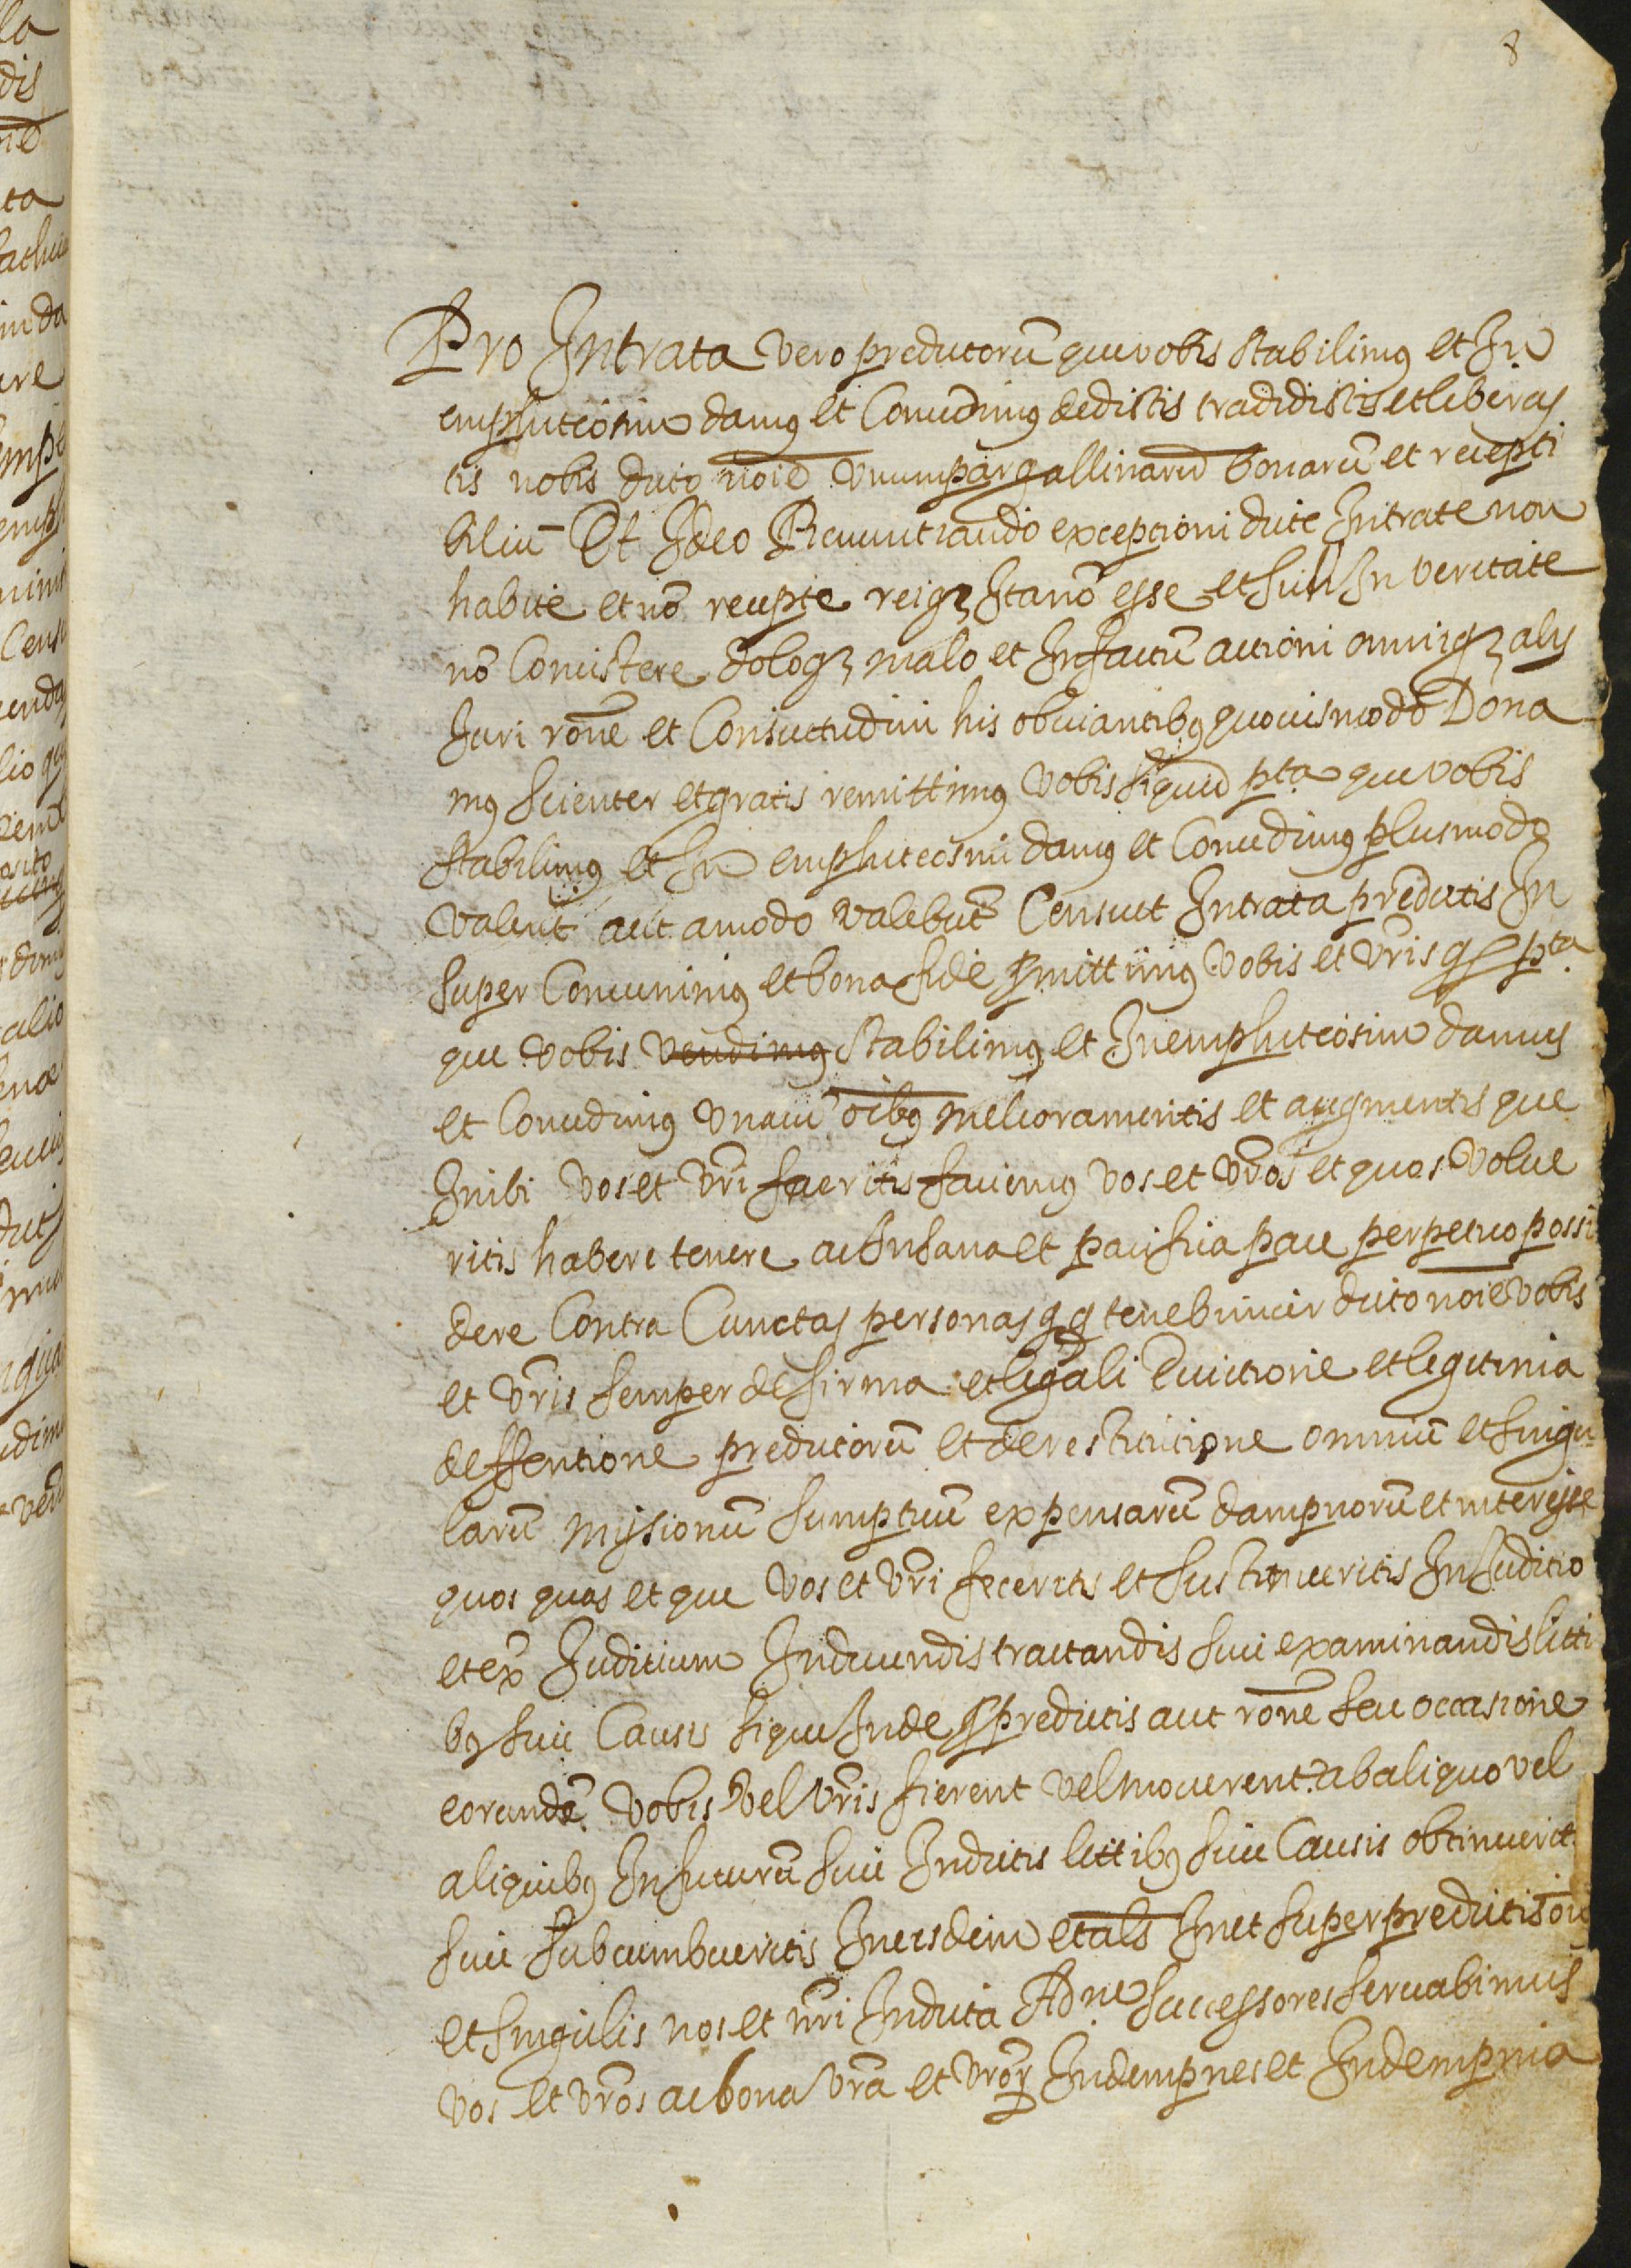 8
Pro Intrata vero predictorũ que vobis stabilimus et In
emphiteosim damus et Concedimus dedistis tradidistis et liberas
tis nobis dicto noīe vnum par gallinarũ bonarũ et recepti
biliũ Et Ideo Renuntiando exceptioni dicte Intrate non
habite et nõ recepte reiq; Ita nõ esse et sic In veritate
nõ Consistere doloq; malo et In factũ actioni omniq; alij
Juri roñe et Consuetudini his obviantibus quovismodo Dona
mus scienter et gratis remittimus vobis siquid pta que vobis
stabilimus et In emphiteosim damus et Concedimus plus modo
valent aut amodo valebũt Censu et Intrata predictis In
super Convenimus et bona fide promittimus vobis et vr̃is q pta
que vobis vendimus stabilimus et In emphiteosim damus
et Concedimus vna cũ oībus melioramentis et augmentis que
Inibi vos et vr̃i feceritis faciemus vos et vr̃os et quos volue
ritis habere tenere ac In sana et pacifica pace perpetuo possi
dere Contra Cunctas personas q q tenebimur dicto noīe vobis
et vr̃is semper de firma et legali Evictione et legitima
deffentione predictorũ et de restitutione omniũ et singu
larũ misionũ sumptuũ expensarũ dampnorũ et interesse
quos quas et que vos et vr̃i feceritis et sustinueritis In Juditio
et ex̃ Juditium In ducendis tractandis sive examinandis litti
bus sive Causis si que Inde pro predictis aut roñe seu occasione
eorundẽ vobis vel vr̃is fierent vel moverent ab aliquo vel
aliquibus In futurũ sive In dictis littibus sive Causis obtinuerit
sive subcumbueritis In eisdem et als In et super predictis oībus
et singulis nos et nr̃i In dicta Adne successores servabimus
vos et vr̃os ac bona vr̃a et vr̃or Indempnes et Indempnia